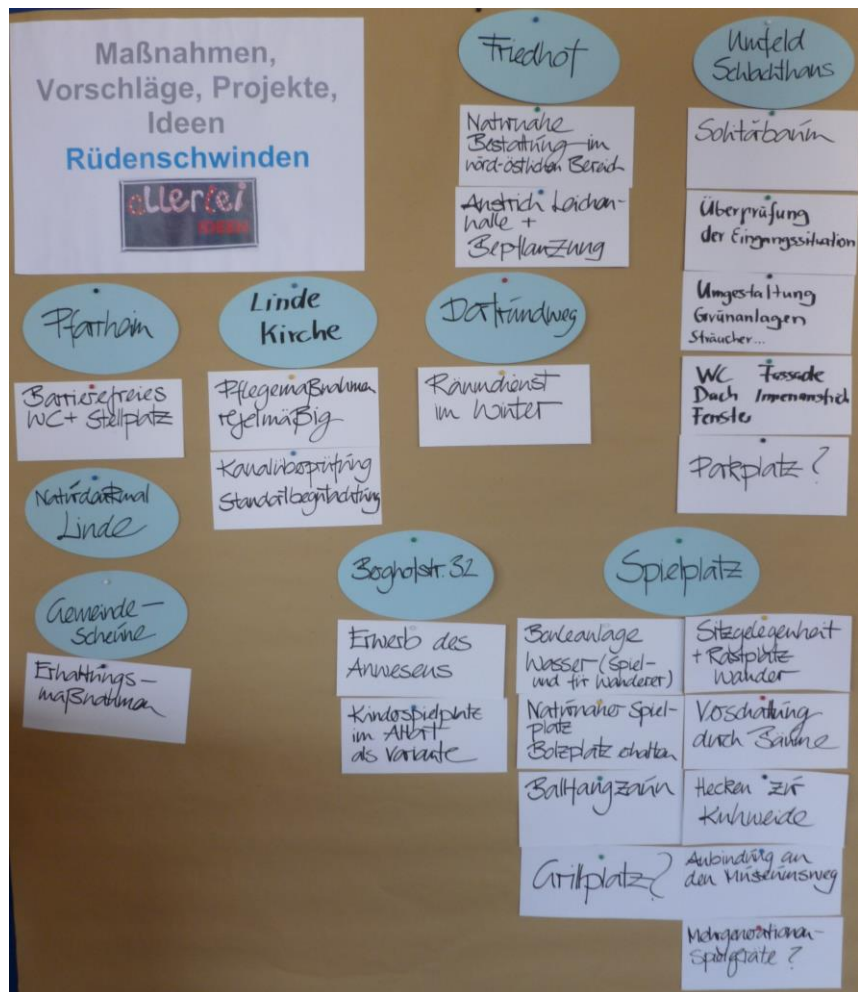 Maßnahmen,
Vorschläge, Projekte,
Ideen
Rüdenschwinden
allerlei
IDEEN
Friedhof
Naturnahe
Bestattung im
nörd-östlichen Bereich
Anstrich Leichen-
halle +
Bepflanzung
Umfeld
Schlachthaus
Solitärbaum
Überprüfung
der Eingangssituation
Umgestaltung
Grünanlagen
Sträucher...
WC Fassade
Dach Innenanstrich
Fenster
Parkplatz?
Pfarrheim
Barrierefreies
WC + Stellplatz
Linde
Kirche
Pflegemaßnahmen
regelmäßig
Kanalüberprüfung
Standortbegutachtung
Dorfrundweg
Räumdienst
im Winter
Naturdenkmal
Linde
Gemeinde-
scheune
Erhaltungs-
maßnahmen
Berghofstr. 32
Erwerb des
Anwesens
Kinderspielplatz
im Altort
als Variante
Spielplatz
Wasser (Spiel-
und für Wanderer)
Naturnaher Spiel-
platz
Bolzplatz erhalten
Ballfangzaun
Grillplatz?
Sitzgelegenheit
+ Rastplatz
Wander
Verschattung
durch Bäume
Hecken zur
Kuhweide
Anbindung an
den Museumsweg
Mehrgenerationen-
spielgeräte?